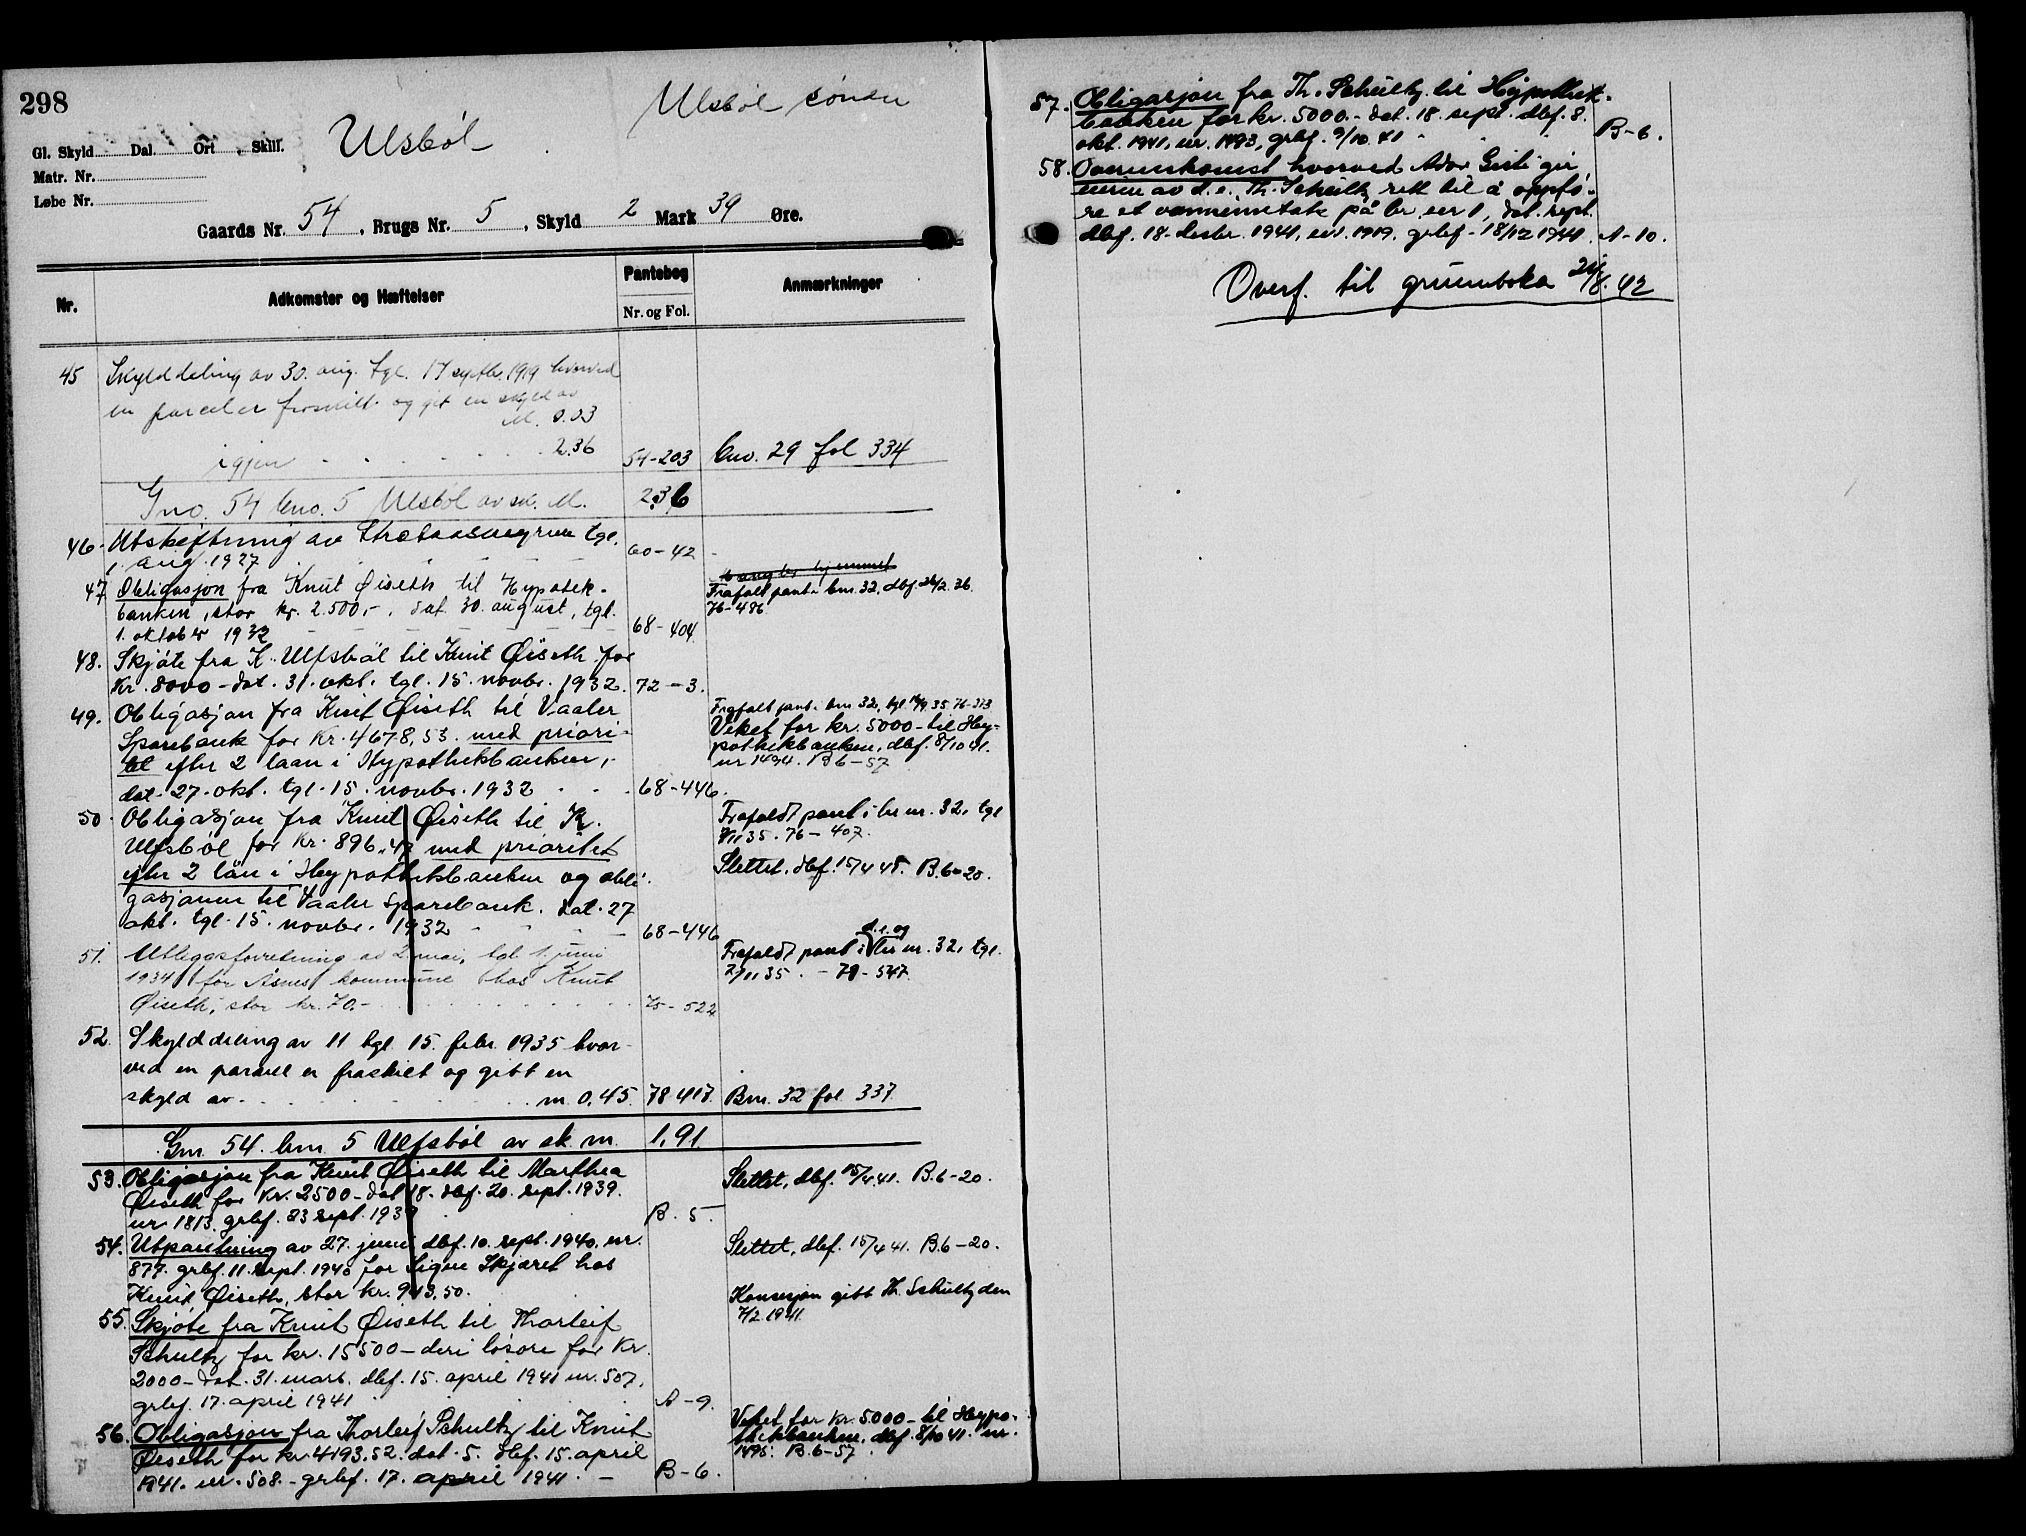 298
Ulsböl Ulsböl söndre
Gl. Skyld Dal. Ort , Skill.
Matr. Nr.
Løbe Nr.
Gaards Nr. 54, Brugs Nr. 5, Skyld 2 Mark 39 Øre.
Nr. Adkomster og Hæftelser Pantebog Anmærkninger
Nr. og Fol.
45 Skylddeling av 30. aug. tgl. 17 septbr. 1919 hvorved
en parcel er fraskilt og git en skyld av
M. 0.03
igjen 2.36 54-203 bno. 29 fol 334
Gno. 54 bno. 5 Ulsböl av sk. M. 2.36
46. Utskiftning av tgl.
1. aug. 1927 60-42
47. Obligasjon fra Knut Øiseth til Hypotek-
banken, stor kr. 2.500,-, dat. 30. august, tgl.
1. oktober 1932 68-404.
Frafalt pant i bnr. 32, dbf. 26/2.36.
76-486
48. Skjöte fra K. Ulfsböl til Knut Øiseth for
kr. 8000 - dat. 31. okt. tgl. 15. novbr. 1932. 72-3.
49. Obligasjon fra Knut Øiseth til Vaaler
Sparebank for kr. 4678,53. med priori-
tet efter 2 laan i Hypothekbanken,
dat. 27. okt. tgl. 15. novbr. 1932 68-446.
Frafalt pant i bnr 32, tgl. 35. 76-373
Veket for kr. 5000 - til Hy-
pothekbanken, dbf. 8/10 41.
nr 1494. B 6-57
50 Obligasjon fra Knut Øiseth til K.
Ulfsböl for kr. 896.47 med prioritet
efter 2 lån i Hypothekbanken og obli-
gasjonen til Vaaler Sparebank. dat. 27
okt. tgl. 15. novbr. 1932 68-446
Frafaldt pant i br nr. 32, tgl
35. 76-407.
Slettet. dbf. 15/4 41. B. 6-20.
51. Utleggsforretning av 2. mai, tgl. 1. juni
1934 for Åsnes kommune hos Knut
Øiseth, stor kr. 70.- 75-522
d.e. og
Frafaldt pant i br nr. 32, tgl.
2/11 35. - 79-547
52. Skylddeling av 11 tgl 15. febr. 1935 hvor-
ved en parsell er fraskilt og gitt en
skyld av m. 0,45. 78 417. Bnr. 32 fol 337
Gnr. 54 bnr 5 Ulfsböl av sk. m. 1,91
53. Obligasjon fra Knut Øiseth til Marthea
Øiseth for kr. 2500 - dat 18. dbf. 20. sept. 1939.
nr. 1813. grbf. 23 sept. 1939 B. 5.
Slettet, dbf. 15/4.41. B. 6-20.
54. Utpantning av 27. juni dbf. 10. sept. 1940. nr.
877. grbf. 11. sept. 1940 for Signe Skjæret hos
Knut Øiseth, stor kr. 913.50.
Slettet, dbf. 15/4 41. B. 6-20.
55. Skjöte fra Knut Øiseth til Thorleif
Schultz for kr. 15500 - deri lösöre for kr.
2000 - dat. 31. mars. dbf. 15. april 1941 nr. 507.
grbf. 17. april 1941 A-9.
Konsesjon gitt Th. Schultz den
7/2 1941.
56. Obligasjon fra Thorleif Schultz til Knut
Øiseth for kr. 4193.52. dat. 5. dbf. 15. april
1941. nr. 508. - grbf. 17. april 1941. B-6.
Veket for kr. 5000 - til Hypo-
thekbanken, dbf. 8/10 41. nr.
1495. B. 6-57
57. Obligasjon fra Th. Schultz til Hypothek-
banken for kr. 5000. - dat. 18. sept. dbf. 8.
okt. 1941, nr. 1493, grbf. 9/10 41 B-6.
58. Overenskomst hvorved Ador gir
eieren av d.e. Th. Schultz rett til å oppfö-
re et på br nr 1, dat. sept.
dbf. 18. desbr. 1941, nr. 1919. grbf. 18/12 1941. A-10.
Overf. til grunnboka 42